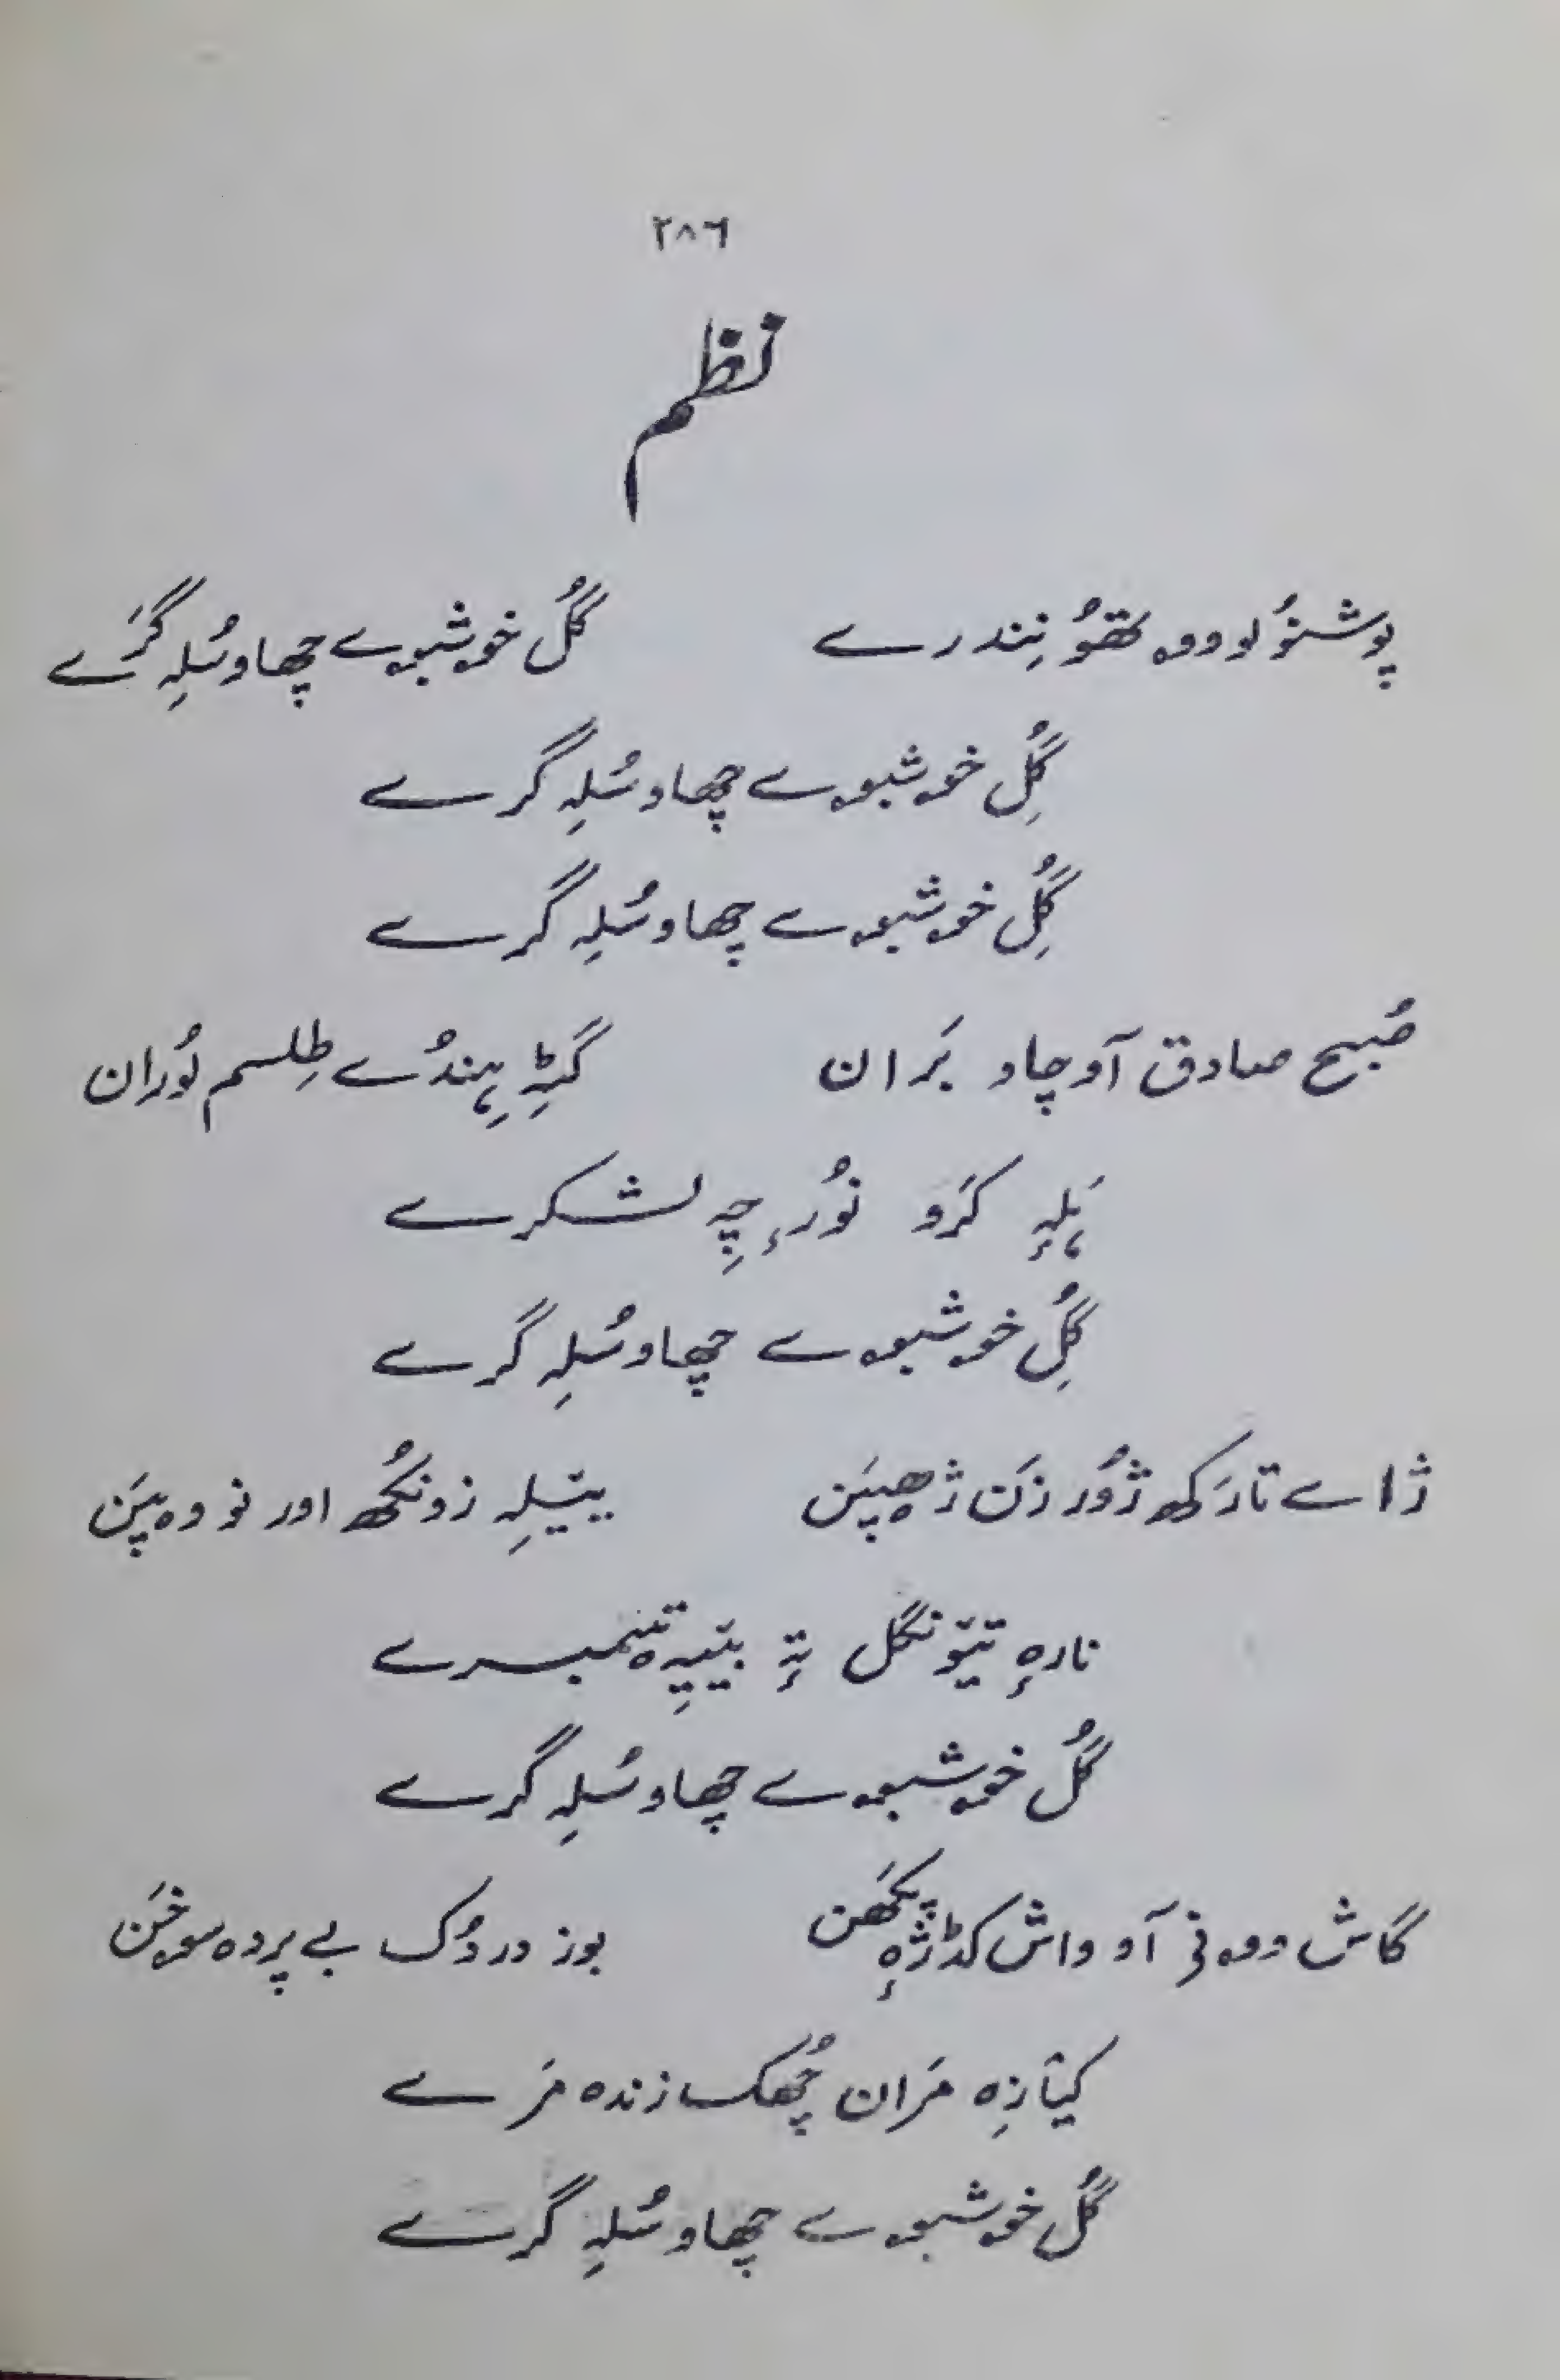 ۲۸٦
نظم
پوشنوُلو ووہ تھوُ نِندرے گُل خوشبوے چھاو سُلِہ گرَے
گُلِ خوشبوے چھاو سُلِہ گرے
گُلِ خوشبوے چھاو سُلِہ گرے
صُبح صادق آو چاو بَران گٔٹِہ ہِندُے طِلسم نوُران
ہَلہٕ کرَو نوُرٕ چِہ لشکرے
گُلِ خوشبوے چھاو سُلِہ گرے
ژاے تارَکھ ژوُر زَن ژھپَن یتِیلہِ زونکُھ اور نو وہ پَن
نارہٕ تیونگل تہٕ بییہِ تمبرے
گُل خوشبوے چھاو سُلِہ گرے
گاش ووفی آو واش کڈ ژہٕ پکھَن بوز دردُک بے پردہ سوخَن
کیاَزِہ مَران چُھک زندہ مَرے
گُل خوشبوے چھاو سُلہِ گرے